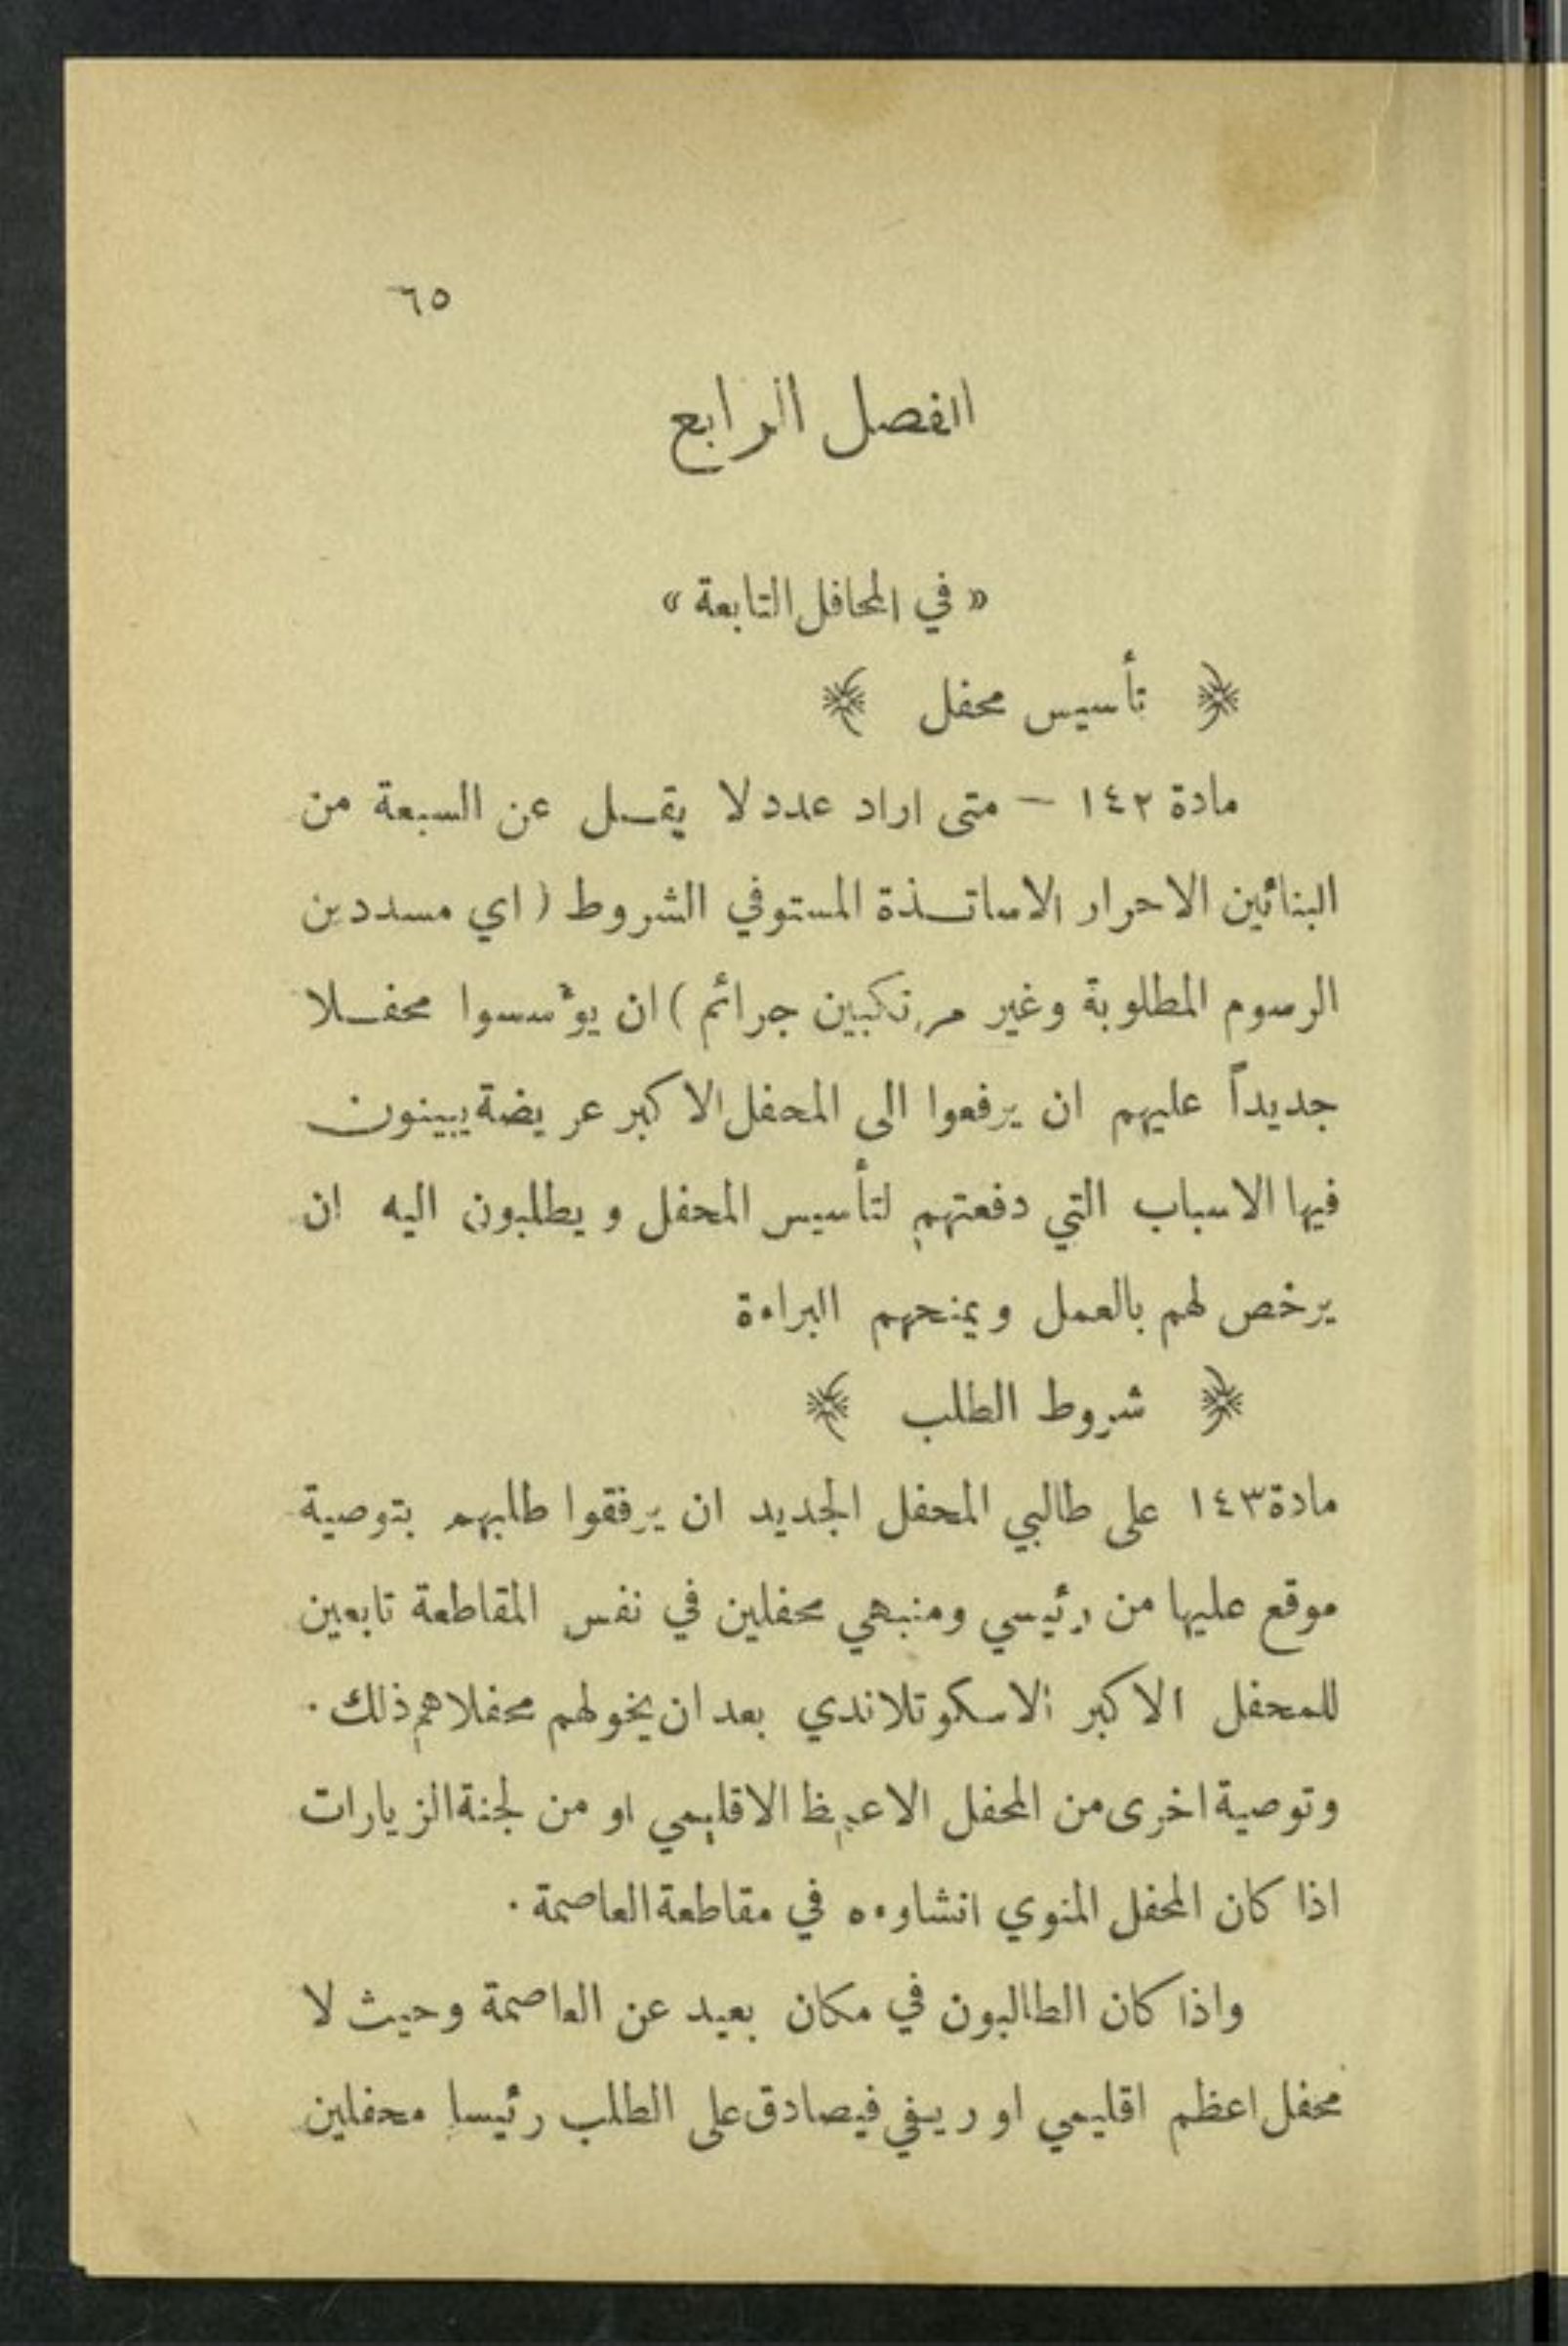 ٦٥
الفصل الرابع
« في المحافل التابعة »
﴿ تأسيس محفل ﴾
مادة ١٤٢ – متى اراد عدد لا يقــل عن السبعة من
البنائين الاحرار الاساتــذة المستوفي الشروط ( اي مسددين
الرسوم المطلوبة وغير مرتكبين جرائم ) ان يؤسسوا محفــلا
جديداً عليهم ان يرفعوا الى المحفل الاكبر عريضة يبينون
فيها الاسباب التي دفعتهم لتأسيس المحفل ويطلبون اليه ان
يرخص لهم بالعمل ويمنحهم البراءة
﴿ شروط الطلب ﴾
مادة ١٤٣ على طالبي المحفل الجديد ان يرفقوا طلبهم بتوصية
موقع عليها من رئيسي ومنبهي محفلين في نفس المقاطعة تابعين
للمحفل الاكبر الاسكوتلاندي بعد ان يخولهم محفلاهم ذلك .
وتوصية اخرى من المحفل الاقليمي او من لجنة الزيارات
اذا كان المحفل المنوي انشاوءه في مقاطعة العاصمة .
واذا كان الطالبون في مكان بعيد عن العاصمة وحيث لا
محفل اعظم اقليمي او ريفي فيصادق على الطلب رئيسا محفلين